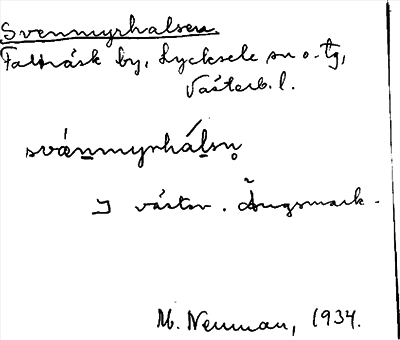 Svennyrhalsen
Fattnäsk by, Lycksele sn o. tg,
Västerb. l.
sväṉmyrháḻsn̥
väster. Ängsmark.
M. Neuman, 1934.